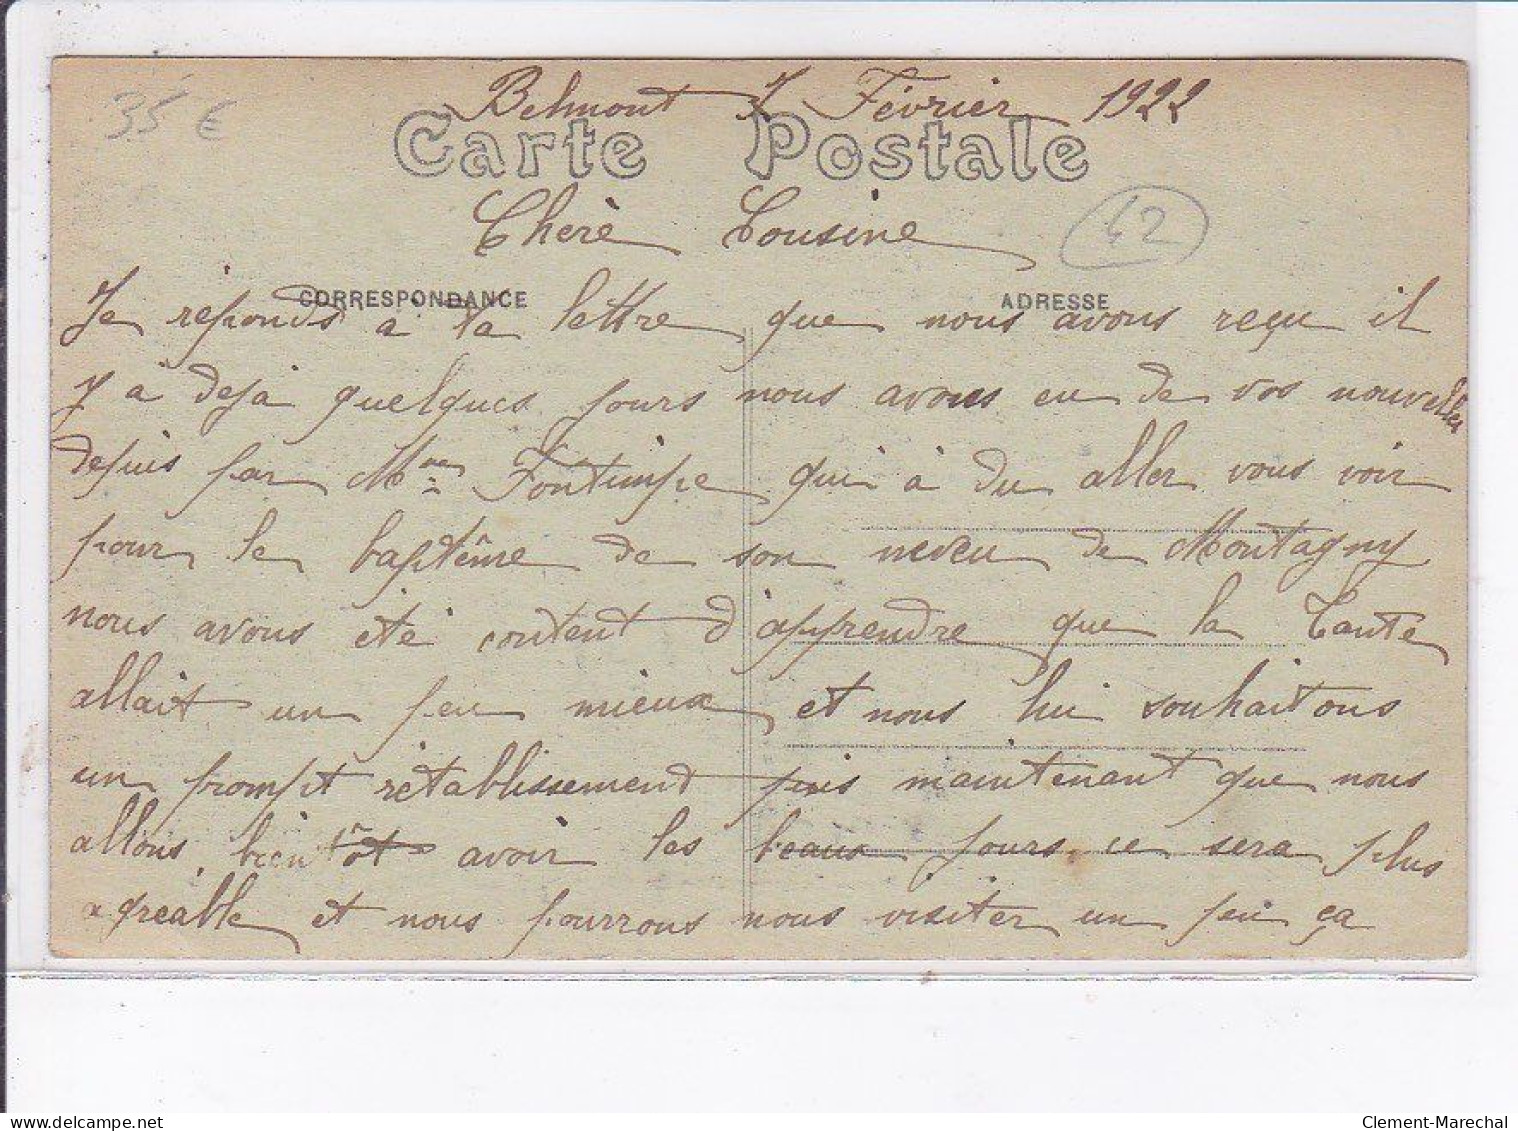 35 €
Belmont 7 Février 1922
Carte Postale
Cherè Cousine
42
CORRESPONDANCE ADRESSE
Je réponds à ta lettre que nous avons reçu il
y à dejà quelques jours nous avons eu de vos nouvelles
depuis par Mme Fontimpe qui à du aller vous voir
pour le baptême de son neveu de Montagny
nous avons été content d'apprendre que la Tante
allait un peu mieux et nous lui souhaitons
un prompt rétablissement puis maintenant que nous
allons bientôt avoir les beaux jours ce sera plus
agréable et nous pourrons nous visiter un peu ça
delcampe.net
Clement-Marechal